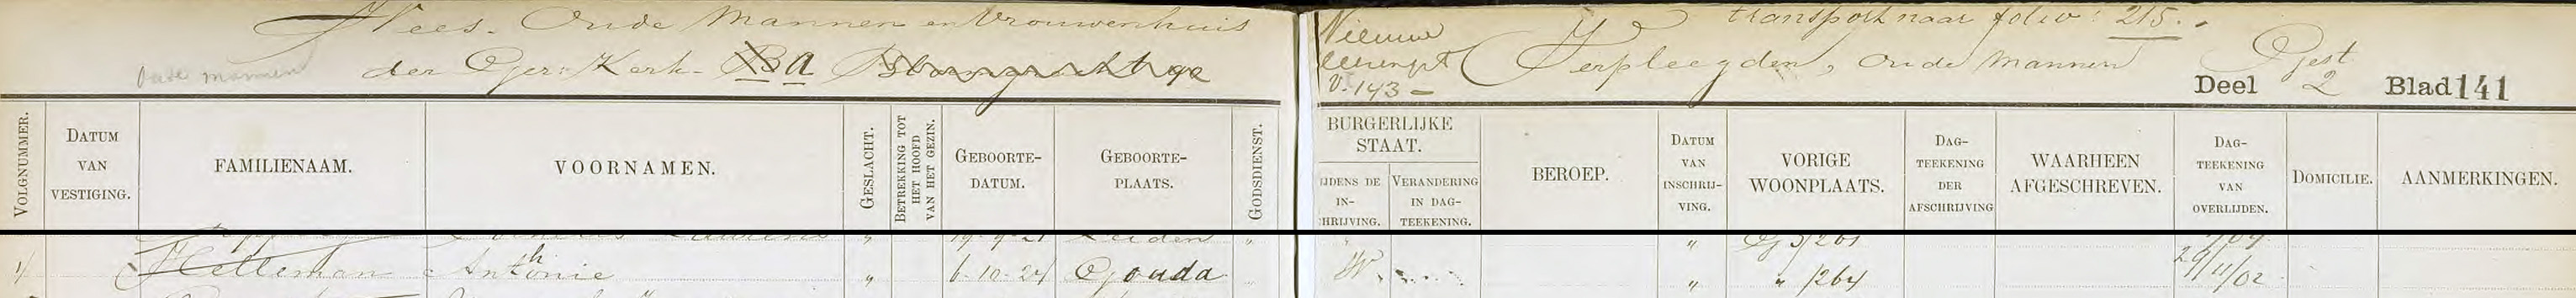 Wees- Oude Mannen en Vrouwenhuis
der Ger: Kerk - a
oude mannen
transport naar folio: 215.
Nieuwe
V. 143 -
Verpleegden, Oude Mannen
Gest
Deel 2 Blad 141
VOLGNUMMER.
DATUM VAN VESTIGING.
FAMILIENAAM.
VOORNAMEN.
GESLACHT.
BETREKKING TOT HET HOOFD VAN HET GEZIN.
GEBOORTE-DATUM.
GEBOORTE-PLAATS.
GODSDIENST.
BURGERLIJKE STAAT.
IJDENS DE IN-HRIJVING.
VERANDERING IN DAG-TEEKENING.
BEROEP.
DATUM VAN INSCHRIJ-VING.
VORIGE WOONPLAATS.
DAG-TEEKENING DER AFSCHRIJVING
WAARHEEN AFGESCHREVEN.
DAG-TEEKENING VAN OVERLIJDEN.
DOMICILIE.
AANMERKINGEN.
Leiden
Helleman Anthonie " 6-10-24 Gouda W. " " /264 29/11/02